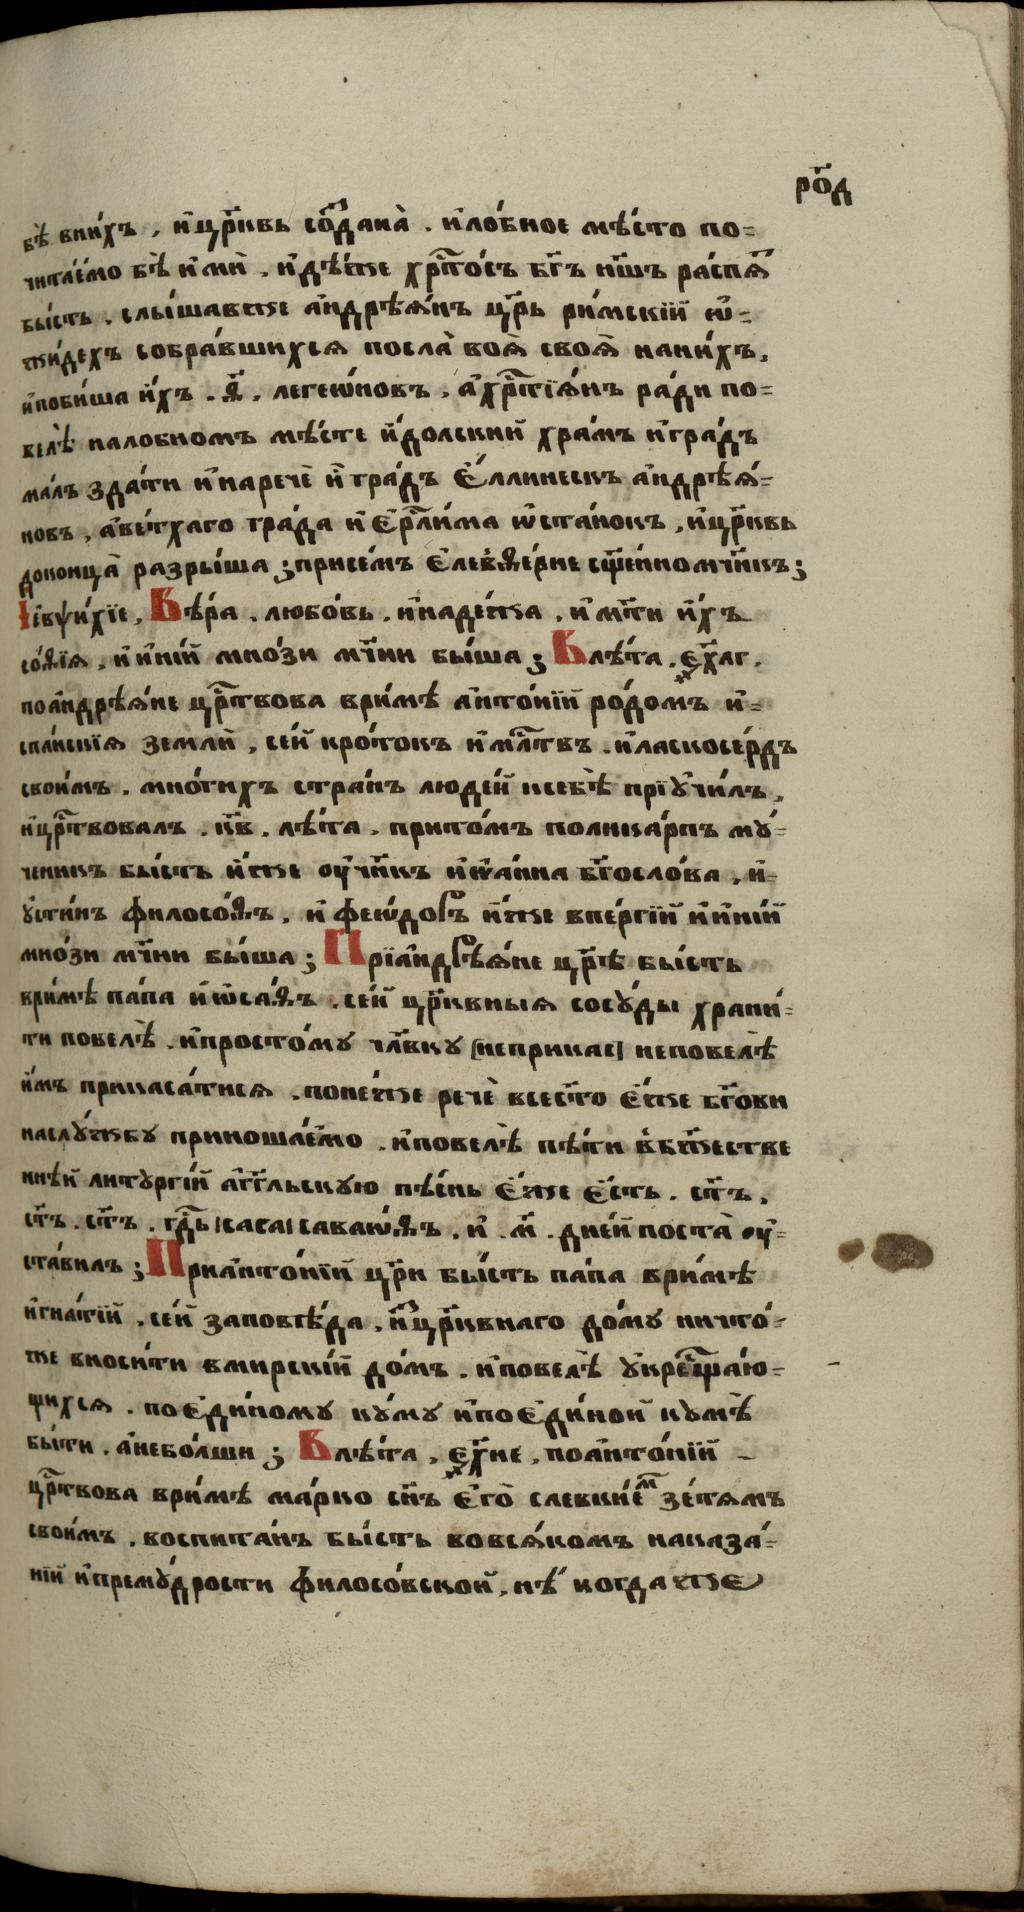 рѻ҃д
бѣ̀ вни́хъ, и҆цр҃ковь со́здана̀. и҆ло́бное мѣ́сто по=
чита́емо бѣ̀ и҆́ми. и҆дѣ́же хрⷭ҇то́съ бг҃ъ нш҃ъ распѧ́тъ
бы́сть. слы́шавже а҆ндрѣѧ́нъ цр҃ь ри́мскїй ѡ҆=
жи́дехъ собра́вшихсѧ посла̀ воѧ̀ своѧ̀ нани́хъ,
и҆поби́ша и҆́хъ. л҃. легеѡ́новъ, а҆хрⷭ҇тїѧ́нъ ра́ди по=
велѣ̀ налобномъ мѣ́сте и҆́долский хра́мъ и҆гра́дъ
ма́лъ зда́ти и҆наречѐ и҆гра́дъ є҆́ллинескъ а҆ндрѣѧ́=
новъ, а҆ве́тхаго гра́да и҆є҆рⷭ҇ли́ма ѡ҆ста́нокъ, и҆цр҃ковь
доконца̀ разры́ша; присе́мъ є҆левѳе́рие сщ҃е́нномчн҃икъ;
і҆е҆вѱи́хїе, Вѣ́ра. любо́вь. и҆наде́жа, и҆мт҃и и҆́хъ
со́ѳїѧ, и҆и҆ні́и мно́зи мч҃нии бы́ша; Влѣ́та ҂є҃хлг.
поа҆ндрѣѧ́не црⷭ҇твова ври́мѣ а҆нто́нїй ро́домъ и҆=
спа́нскїѧ земли́, се́й кро́токъ и҆млⷭ҇твъ. и҆ласкосе́рдъ
свои́мъ. мно́гихъ стра́нъ люде́й ксебѣ̀ прїꙋчи́лъ,
и҆црⷭ҇твовалъ. к҃в. лѣ́та. прито́мъ полика́рпъ мꙋ́=
ченикъ бы́сть и҆́же оу҆чн҃къ и҆ѡ҆а́нна бг҃осло́ва, и҆=
ꙋсти́нъ филосо́ѳъ. и҆ феѡ́доръ и҆́же впергі́и и҆и҆ні́и
мно́зи мч҃нии бы́ша; Прїа҆ндрѣѧ́не цр҃ѣ бы́сть
ври́мѣ па́па и҆ѡ҆са́ѳъ. се́й цр҃ковныѧ сосꙋ́ды храни́=
ти повелѣ̀. и҆просто́мꙋ чл҃вкꙋ [неприкас] неповелѣ̀
и҆́мъ прикаса́тисѧ. поне́же речѐ всест҃о є҆́же бг҃ови
наслꙋ́жбꙋ приноша́емо. и҆повелѣ̀ пѣ́ти в҆бж҃естве
ннѣ́й литꙋргі́и а҆гг҃льскꙋю пѣ́снь є҆́же є҆́сть. ст҃ъ,
ст҃ъ. ст҃ъ. гдⷭ҇ь [саса] саваѡ́ѳъ. и҆. м҃. дне́й поста̀ оу҆=
ста́вилъ; Приа҆нто́нїй цр҃и бы́сть па́па ври́мѣ
и҆гна́тїй. се́й заповѣ́да. и҆з̾цр҃ковнаго до́мꙋ ничто́=
же вноси́ти вмирскі́й до́мъ. и҆повелѣ̀ ꙋ҆креща́ю=
щихсѧ. пое҆ди́номꙋ кꙋ́мꙋ и҆пое҆ди́ной кꙋмѣ̀
бы́ти. а҆небо́лши; Влѣ́та, ҂є҃хне, поа҆нто́нїй
црⷭ҇твова ври́мѣ ма́рко сн҃ъ є҆го̀ слевкиеⷨ зе́тѧмъ
свои́мъ. воспита́нъ бы́сть вовсѧ́комъ наказа́=
ніи и҆премꙋ́дрости филосо́вской, нѣ́когдаже